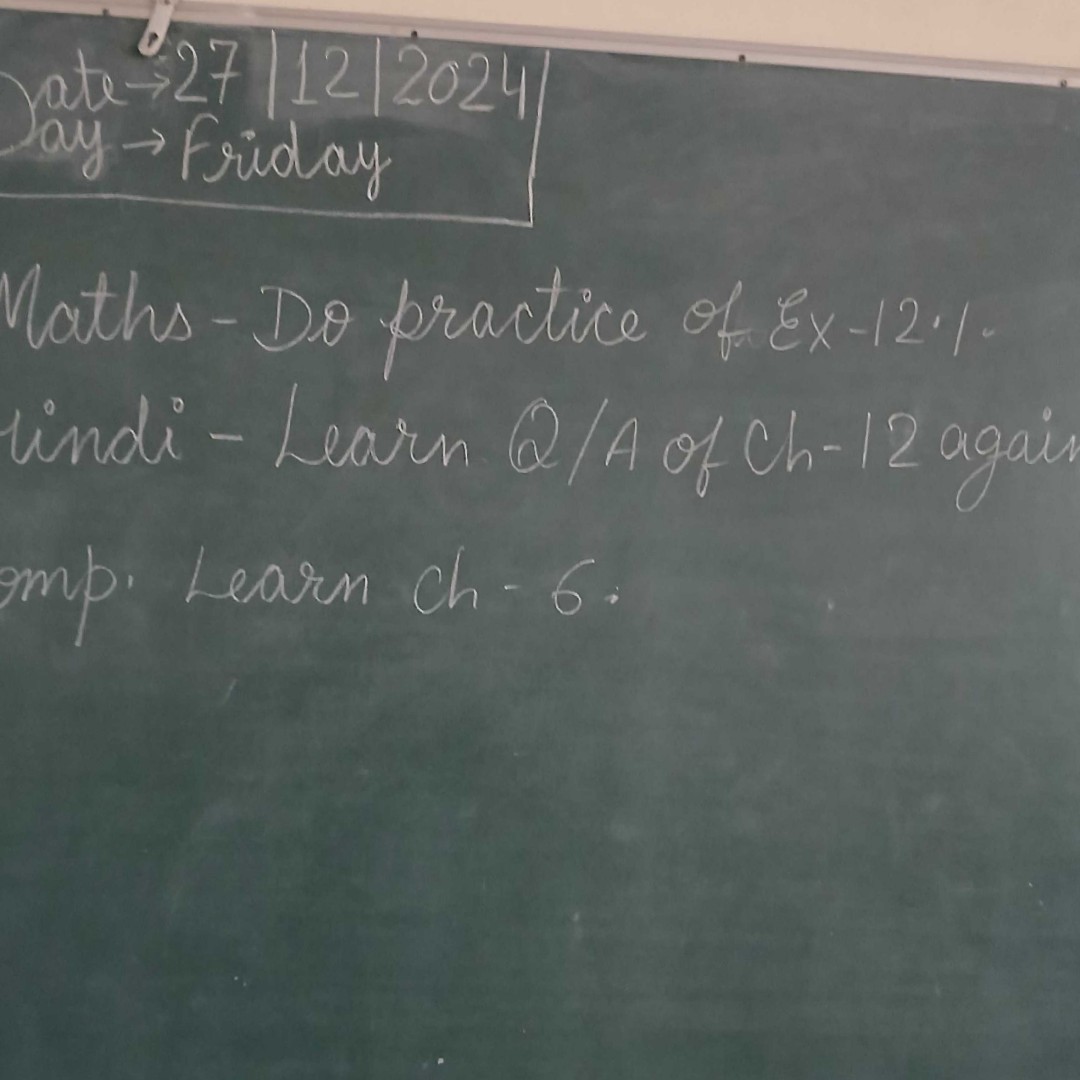 Date → 27 | 12 | 2024
Day → Friday
Maths - Do practice of Ex - 12.1.
Hindi - Learn Q/A of Ch - 12 again
omp. Learn Ch - 6.